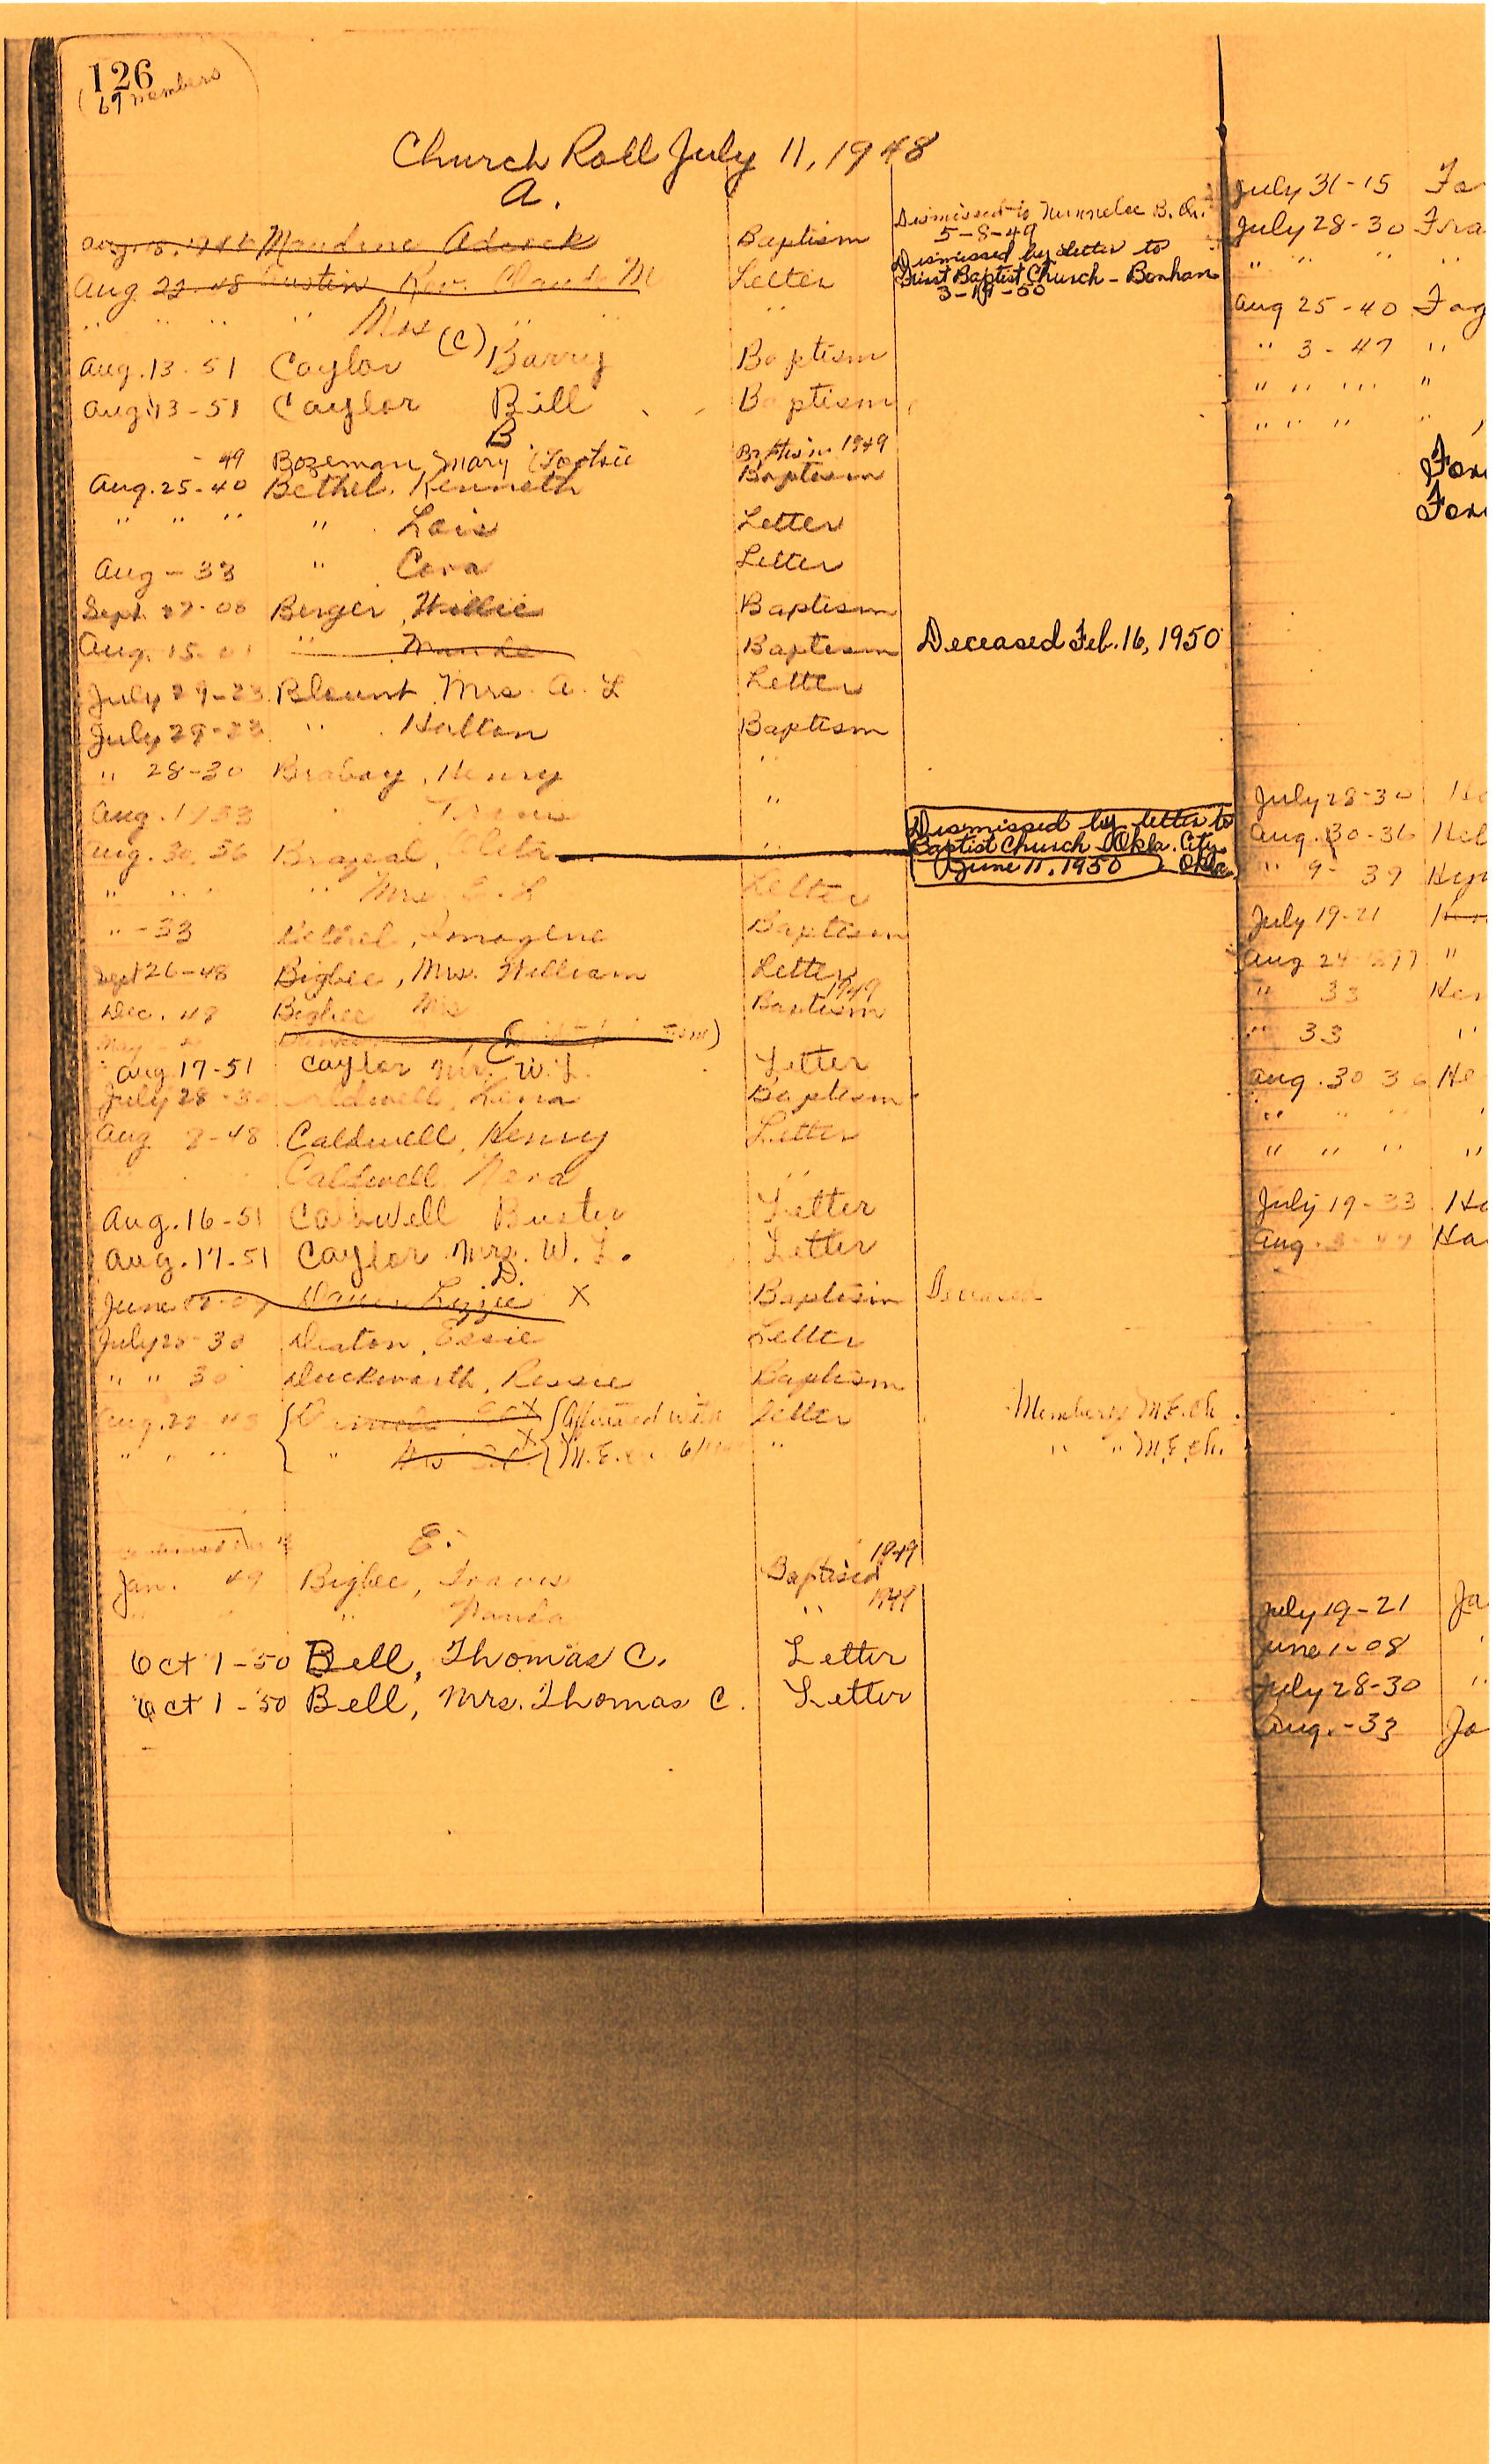 126
67 members
Church Roll July 11, 1948
A.
Maudine Adcock Baptism Dismissed to B. Ch. 5-8-49
Aug 22-48 Austin Rev. Claude M Letter Dismissed by Letter to First Baptist Church - Bonham 3-19-50
" " " " Mrs " " "
(C)
Aug. 13-51 Caylor Barry Baptism
Aug 13-51 Caylor Bill Baptism
B
- 49 Bozeman, Mary (Tootsie Baptism 1949
Aug. 25-40 Bethel, Kenneth Baptism
" " " " Lois Letter
Aug - 33 " Cora Letter
Sept. 27-08 Berger, Willie Baptism
Aug. 15- " Maude Baptism Deceased Feb. 16, 1950
July 29-23 Blount Mrs. A. L Letter
July 29-23 " Halton Baptism
" 28-30 Brabay, Henry "
Aug. 1933 " Travis "
Aug. 30, 36 Brazeal, Cleta " Dismissed by letter to Baptist Church Okla. City, Okla June 11, 1950
" " " " Mrs. E. L Letter
" - 33 Bethel, Imogene Baptism
Sept 26-48 Bigbee, Mrs. William Letter
Dec. 48 Bigbee Mrs Baptism 1949
C
Aug 17-51 Caylor Mrs. W. L. Letter
July 28-30 Caldwell, Lena Baptism
Aug 8-48 Caldwell, Henry Letter
Caldwell "
Aug. 16-51 Caldwell Buster Letter
Aug. 17-51 Caylor Mrs. W. L. Letter
D.
June Lizzie X Baptism Deceased
July 28-30 Deaton, Essie Letter
" " 30 Duckworth, Bessie Baptism
Aug. 22-48 X Affiliated with Letter Members M.E. ch.
" " " " X M.E. " " " M.E. ch.
E.
Jan. 49 Bigbee, Travis Baptised 1949
" " " " 1949
Oct 1-50 Bell, Thomas C. Letter
Oct 1-50 Bell, Mrs. Thomas C. Letter
July 31-15 Fo
July 28-30 Fra
" " " "
Aug 25-40 Fog
" 3-47 "
" " " "
" " " "
Fox
Fox
July 28-30
Aug. 30-36 Hel
" 9-39
July 19-21
Aug 24-1897 "
" 33 Hen
" 33 "
Aug. 30 36 He
" " "
" " " "
July 19-33 Ha
Aug. Ha
July 19-21 Ja
June 1-08 "
July 28-30 "
Aug. - 33 Jo